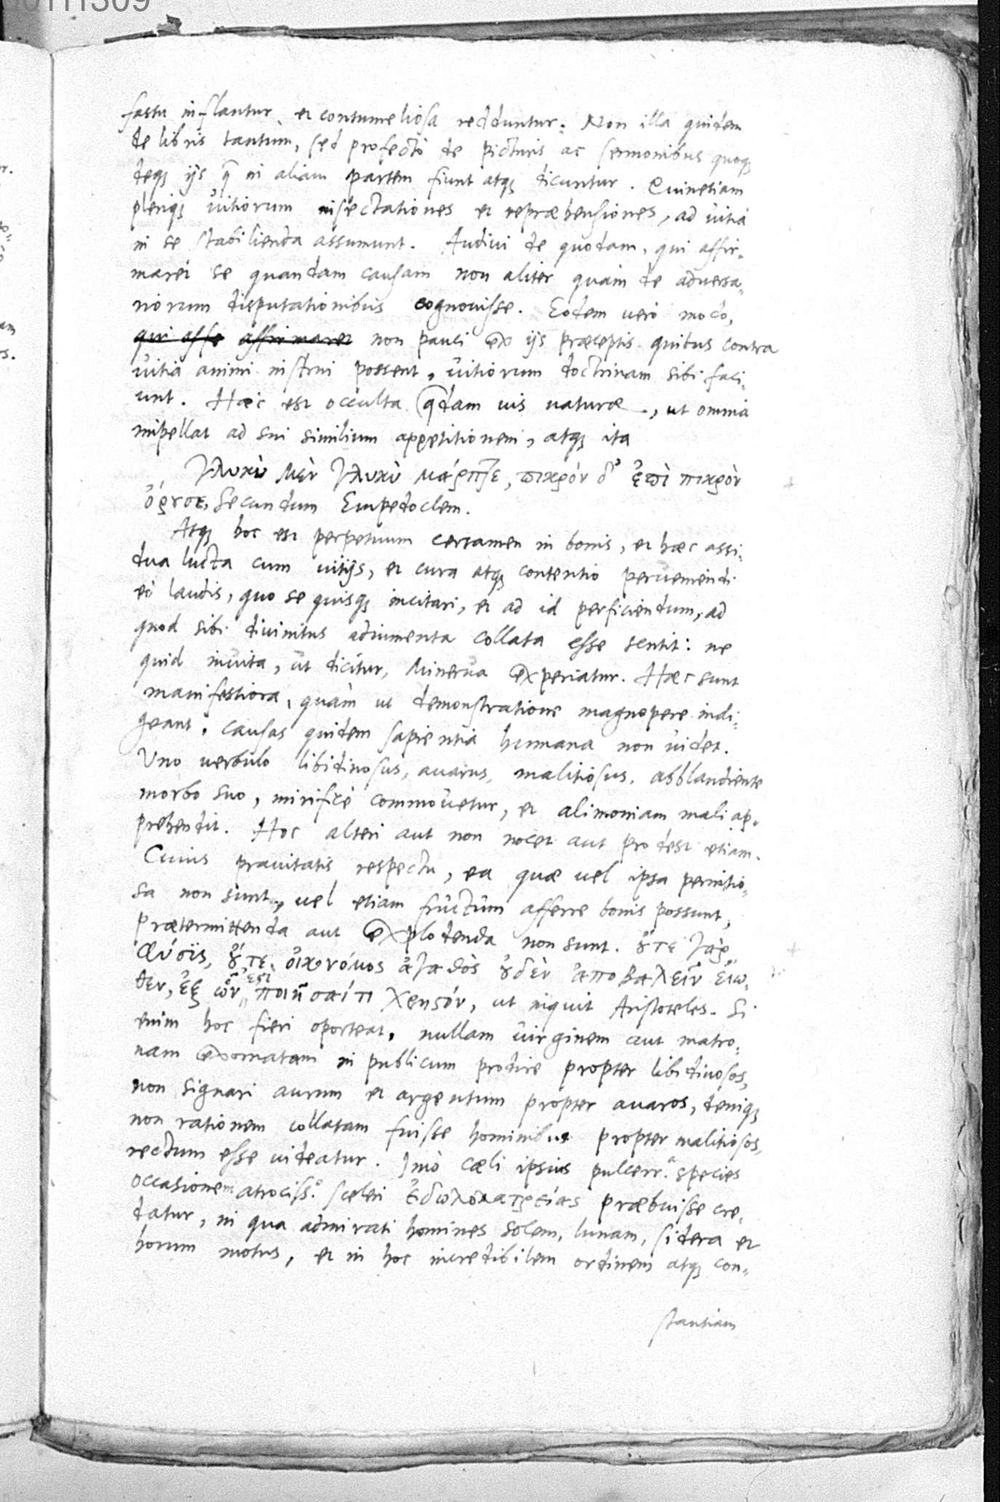 fastu inflantur, et contumeliosa redduntur: Non illa quidem
de libris tantum, sed profecto de picturis ac sermonibus quoq;
deq; ijs q̄ in aliam partem fiunt atq; dicuntur. Quinetiam
pleriq; vitiorum insectationes et repræhensiones, ad vitia
in se stabilienda assumunt. Audivi de quodam, qui affir-
maret se quandam causam non aliter quam de adversa-
riorum disputationibus cognovisse. Eodem vero modo,
qui esse affirmaret non pauci ex ijs præceptis quibus contra
vitia animi instrui possent, vitiorum doctrinam sibi faci-
unt. Hæc est occulta q̄dam vis naturæ, ut omnia
impellat ad sui similium appetitionem, atq; ita
γλυκὺ μὲν γλυκὺ μάρπτε, πικρὸν δ' ἐπὶ πικρὸν
ὄρνσε, Secundum Empedoclem.
Atq; hoc est perpetuum certamen in bonis, et hæc assi-
dua lucta cum vitijs, et cura atq; contentio perveniendi
eò laudis, quo se quisq; incitari, et ad id perficiendum, ad
quod sibi divinitus adiumenta collata esse sentit: ne
quid invita, ut dicitur, Minerva experiatur. Hæc sunt
manifestiora, quàm ut demonstratione magnopere indi-
geant, causas quidem sapientia humana non videt.
Uno verbulo libidinosus, avarus, malitiosus, abblandiente
morbo suo, mirificè commovetur, et alimoniam mali ap-
prehendit. Hoc alteri aut non nocet aut prodest etiam.
Cuius pravitatis respectu, ea quæ vel ipsa pernitio-
sa non sunt, vel etiam fructum afferre bonis possunt,
prætermittenda aut explodenda non sunt. οὔτε γὰρ
φύσις, οὔτε οἰκονόμος ἀγαθὸς οὐδὲν ἀποβαλεῖν εἴω-
θεν, ἐξ ὧν ἐστι ποιῆσαί τι χρηστόν, ut inquit Aristoteles. Si
enim hoc fieri oporteat, nullam virginem aut matro-
nam exornatam in publicum prodire propter libidinosos,
non signari aurum et argentum propter avaros, deniq;
non rationem collatam fuisse hominibus propter malitiosos,
rectum esse videatur. Imò cæli ipsius pulcerr.ᵃ species
occasionem atrociss.º sceleri εἰδωλολατρείας præbuisse cre-
datur, in qua admirati homines Solem, lunam, sidera et
horum motus, et in hoc incredibilem ordinem atq; con-
stantiam